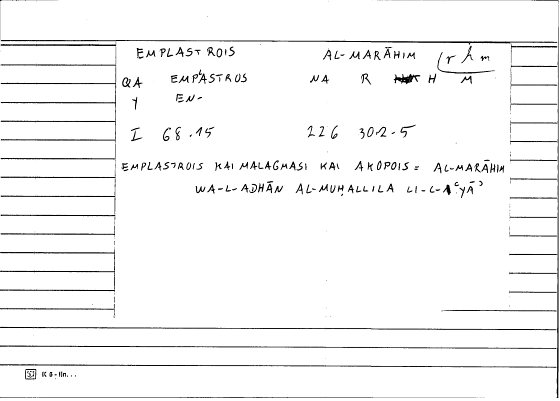 EMPLASTROIS AL-MARĀHIM (r h m
QA EMPASTROS NA R H M
Y EN-
I 68.15 226 30.2-5
EMPLASTROIS KAI MALAGMASI KAI AKOPOIS = AL-MARĀHIM
WA-L-ADHĀN AL-MUḤALLILA LI-L-IʿYĀʾ